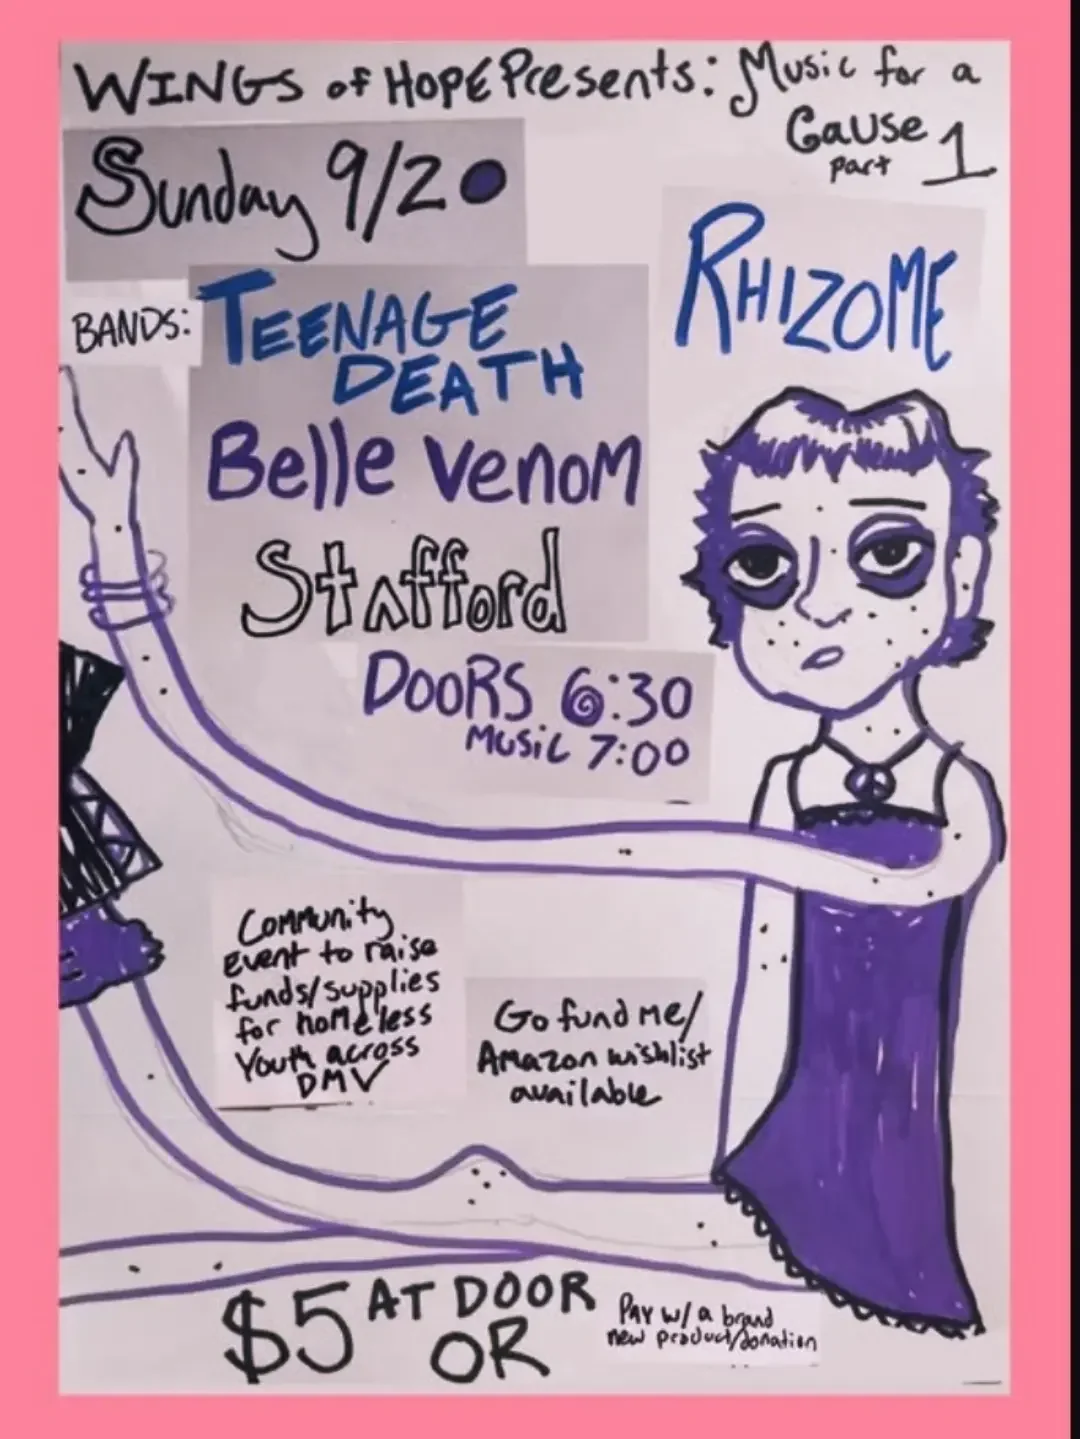 WINGS of HOPE Presents: Music for a
Cause
part 1
Sunday 9/20
RHIZOME
BANDS: TEENAGE
DEATH
Belle Venom
Stafford
DOORS 6:30
MUSIC 7:00
Community
Event to raise
funds/supplies
for homeless
Youth across
DMV
Go fund me/
Amazon wishlist
available
$5 AT DOOR
OR
PAY w/ a brand
new product/donation